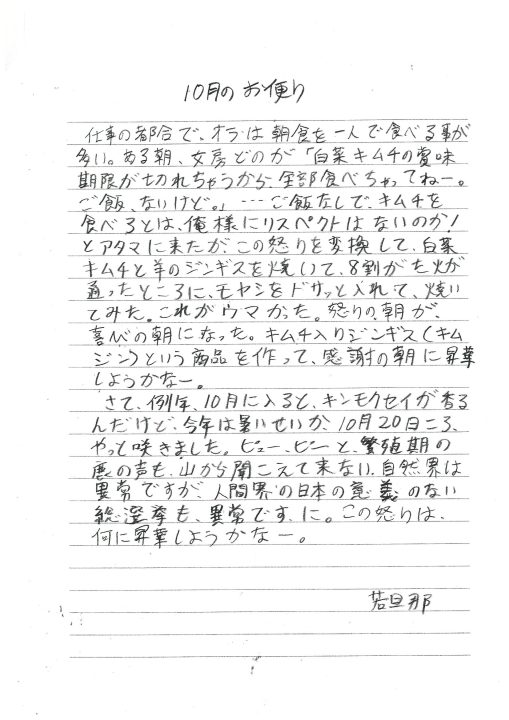 10月のお便り
仕事の都合で、オラは朝食を一人で食べる事が
多い。ある朝、女房どのが「白菜キムチの賞味
期限が切れちゃうから、全部食べちゃってねー。
ご飯、ないけど。」…ご飯なしで、キムチを
食べろとは、俺様にリスペクトはないのか!
とアタマに来たが、この怒りを変換して、白菜
キムチと羊のジンギスを焼いて、8割がた火が
通ったところに、モヤシをドサッと入れて、焼い
てみた。これがウマかった。怒りの朝が、
喜びの朝になった。キムチ入りジンギス(キム
ジン)という商品を作って、感謝の朝に昇華
しようかなー。
さて、例年、10月に入ると、キンモクセイが香る
んだけど、今年は暑いせいか、10月20日ころ、
やっと咲きました。ピュー、ピーと、繁殖期の
鹿の声も、山から聞こえて来ない。自然界は
異常ですが、人間界の日本の意義のない
総選挙も、異常です、に。この怒りは、
何に昇華しようかなー。
若旦那